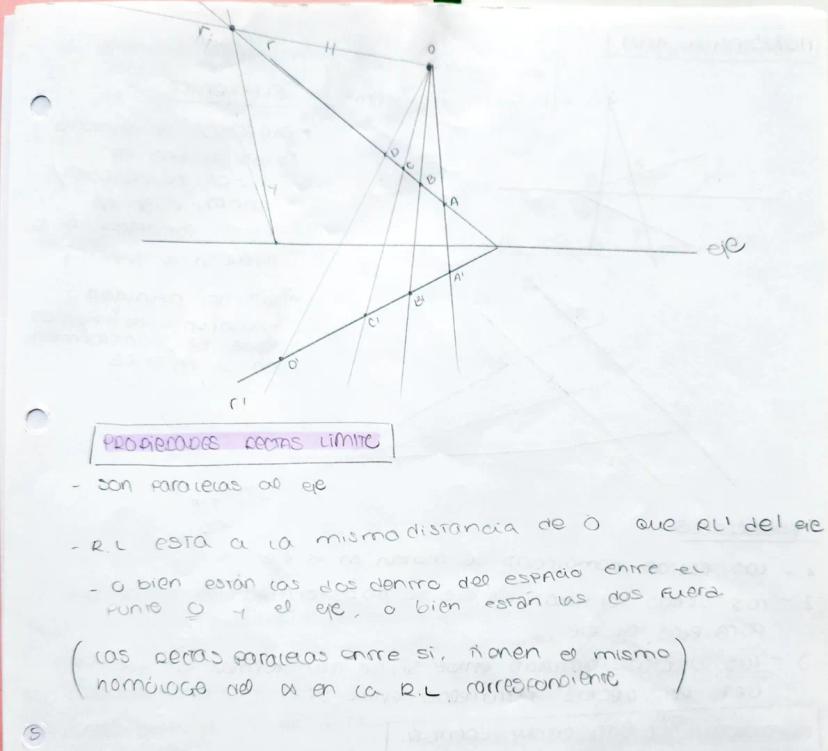 ri
r
H
O
D
C
B
A
y
eje
A'
B'
C'
D'
r'
PROPIEDADES RECTAS LÍMITE
- son paralelas al eje
- R.L está a la misma distancia de O que RL' del eje
- o bien están las dos dentro del espacio entre el
punto O y el eje, o bien están las dos fuera.
(las rectas paralelas entre si, tienen el mismo
homólogo del ∞ en la R.L. correspondiente)
5